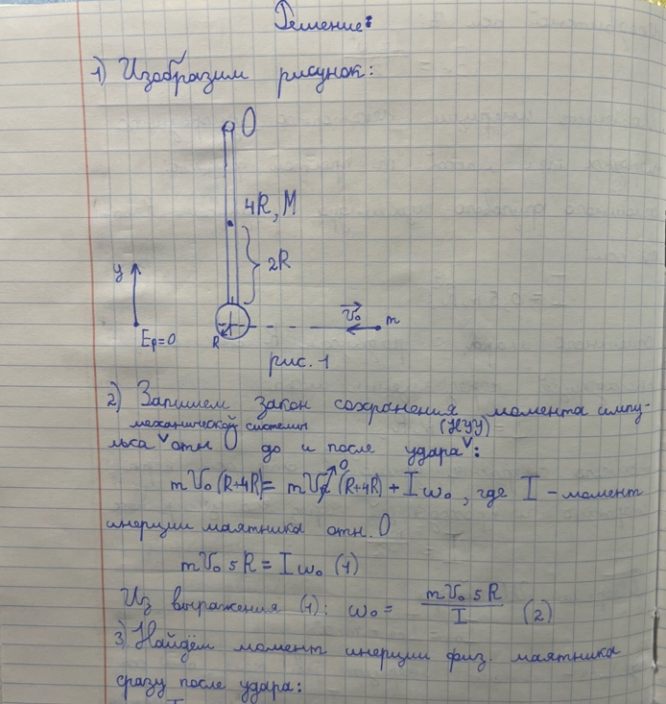 Решение:
1) Изобразим рисунок:
O
4R, M
2R
y
v₀
m
Eₚ=0
R
рис. 1
2) Запишем закон сохранения момента импу-
механической системы (НУУ)
льса ∨ отн O до и после удара ∨:
mV₀(R+4R) = mV (R+4R) + Iω₀, где I – момент
0
инерции маятника отн. O
mV₀ 5R = Iω₀ (1)
Из выражения (1): ω₀ = mV₀ 5R / I (2)
3) Найдём момент инерции физ. маятника
сразу после удара: